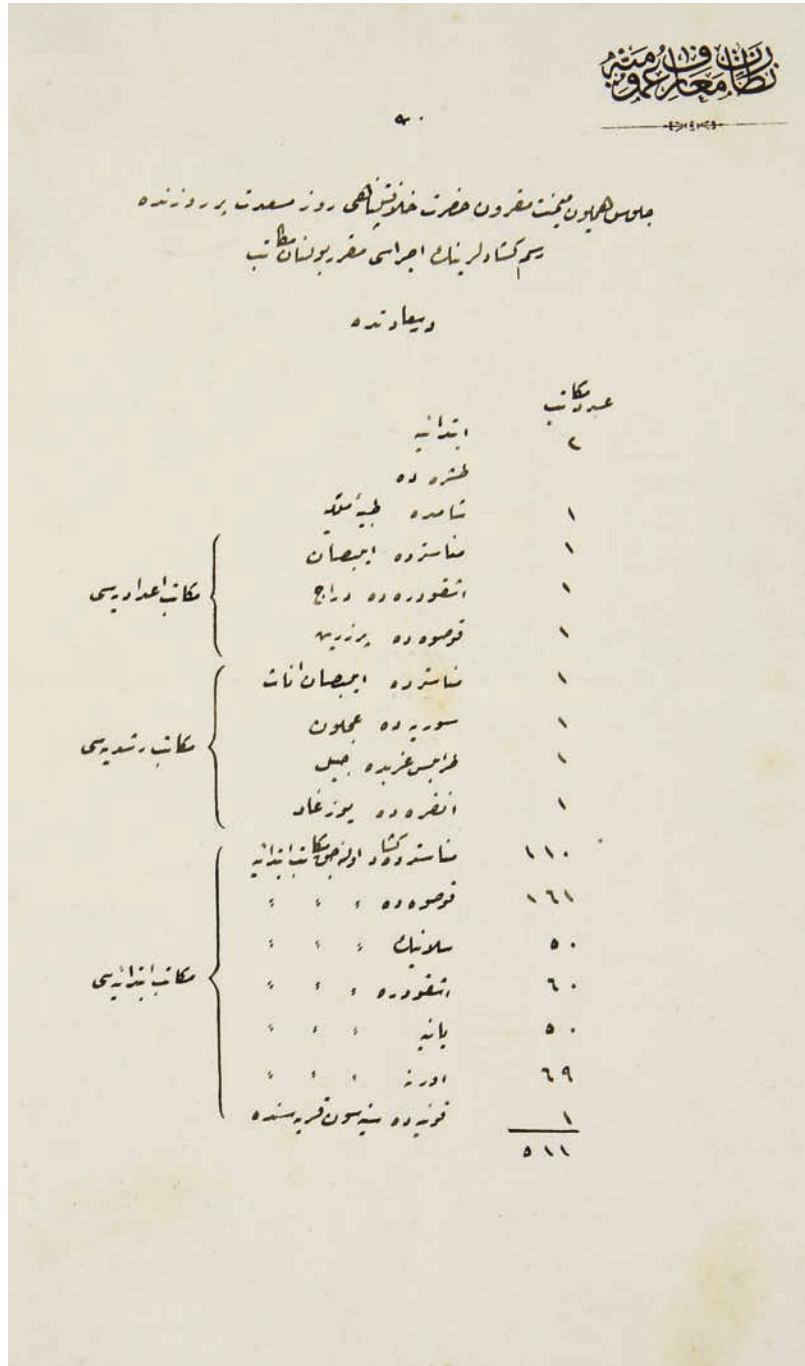 نظارت معارف عمومیه
جلوس همایون میمنت مقرون حضرت خلافتپناهی روز مسعدت بروزنده
رسم کشادلرینك اجراسی مقرر بولنان مکاتب
درسعادتده
عدد مکاتب
٢ ابتدائیه
طشره ده
١ شامده طبیهٔ ملکیه
١ مناسترده ایلبصان
١ اشقودره ده دراج
١ قوصوه ده پرزرین
مکاتب اعدادیه سی
١ مناسترده ایلبصان اناث
١ سوریه ده عجلون
١ طرابلس غربده جبل
١ انقره ده یوزغاد
مکاتب رشدیه سی
١١٠ مناسترده کشاد اولنه جق مکاتب ابتدائیه
١٦١ قوصوه ده " " "
٥٠ سلانیك " " "
٦٠ اشقودره " " "
٥٠ یانیه " " "
٦٩ ادرنه " " "
١ قونیه ده قریه سنده
مکاتب ابتدائیه سی
٥١١